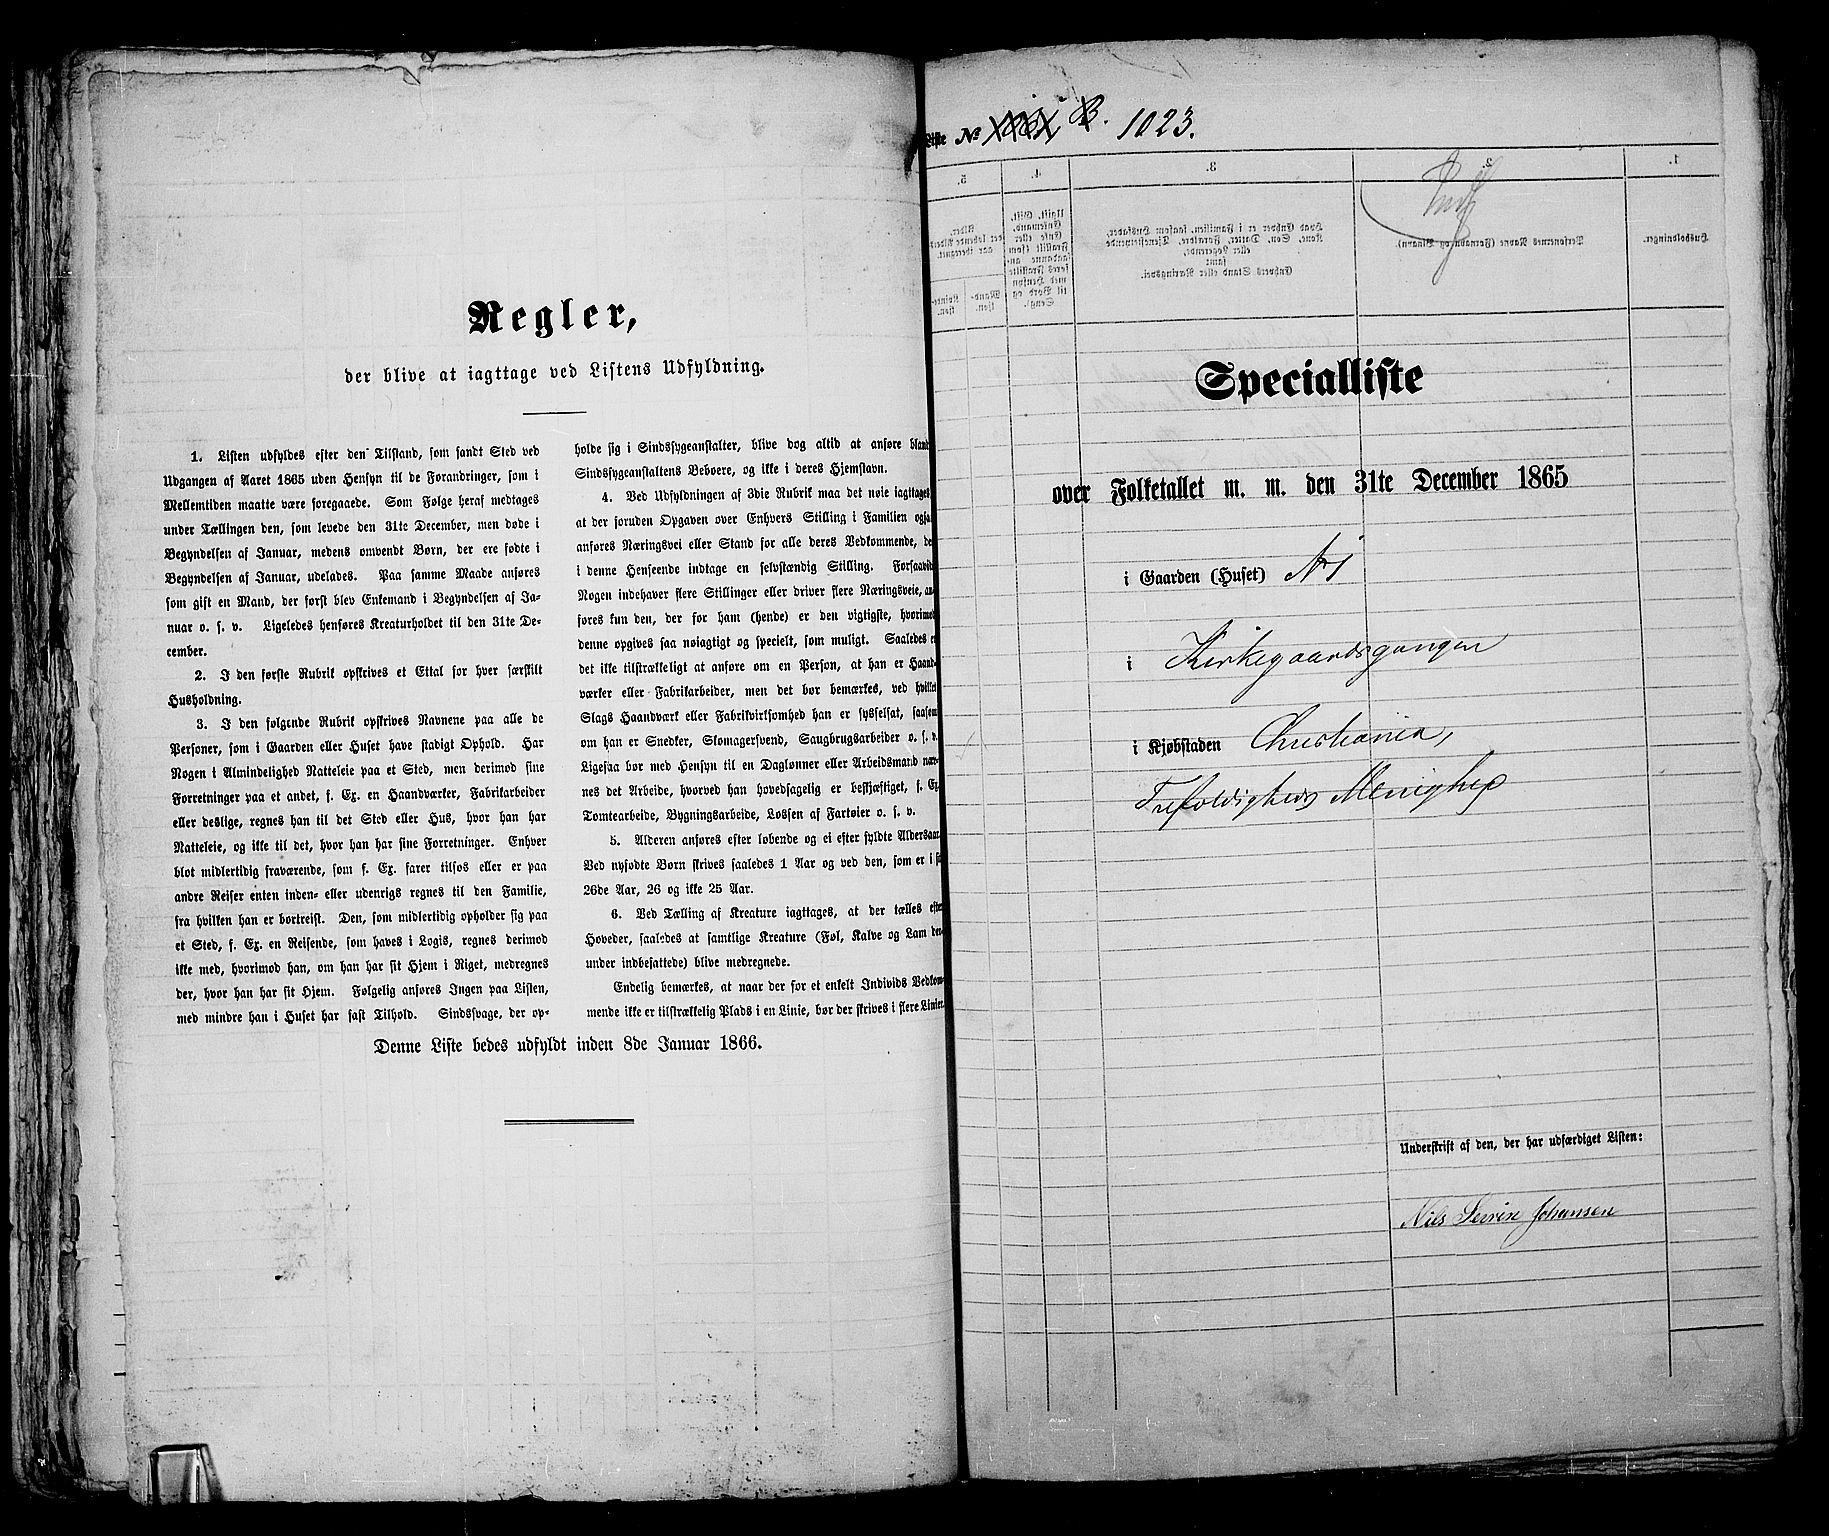 Regler,
der blive at iagttage ved Listens Udfyldning.
1. Listen udfyldes efter den Tilstand, som fandt Sted ved
Udgangen af Aaret 1865 uden Hensyn til de Forandringer, som i
Mellemtiden maatte være foregaaede. Som Følge heraf medtages
under Tællingen den, som levede den 31te December, men døde i
Begyndelsen af Januar, medens omvendt Børn, der ere fødte i
Begyndelsen af Januar, udelades. Paa samme Maade anføres
som gift en Mand, der først blev Enkemand i Begyndelsen af Ja-
nuar o. s. v. Ligeledes henføres Kreaturholdet til den 31te De-
cember.
2. I den første Rubrik opskrives et Ettal for hver særskilt
Husholdning.
3. I den følgende Rubrik opskrives Navnene paa alle de
Personer, som i Gaarden eller Huset have stadigt Ophold. Har
Nogen i Almindelighed Natteleie paa et Sted, men derimod sine
Forretninger paa et andet, f. Ex. en Haandværker, Fabrikarbeider
eller deslige, regnes han til det Sted eller Hus, hvor han har
Natteleie, og ikke til det, hvor han har sine Forretninger. Enhver
blot midlertidig fraværende, som f. Ex. farer tilsøs eller er paa
andre Reiser enten inden- eller udenrigs regnes til den Familie,
fra hvilken han er bortreist. Den, som midlertidig opholder sig paa
et Sted, f. Ex. en Reisende, som haves i Logis, regnes derimod
ikke med, hvorimod han, om han har sit Hjem i Riget, medregnes
der, hvor han har sit Hjem. Følgelig anføres Ingen paa Listen,
med mindre han i Huset har fast Tilhold. Sindssvage, der op-
holde sig i Sindssygeanstalter, blive dog altid at anføre bland
Sindssygeanstaltens Beboere, og ikke i deres Hjemstavn.
4. Ved Udfyldningen af 3die Rubrik maa det nøie iagttages
at der foruden Opgaven over Enhvers Stilling i Familien ogsaa
anføres Næringsvei eller Stand for alle deres Vedkommende, de
i denne Henseende indtage en selvstændig Stilling. Forsaavidt
Nogen indehaver flere Stillinger eller driver flere Næringsveie, an-
føres kun den, der for ham (hende) er den vigtigste, hvorimod
denne opgives saa nøiagtigt og specielt, som muligt. Saaledes er
det ikke tilstrækkeligt at anføre om en Person, at han er Haand-
værker eller Fabrikarbeider, men det bør bemærkes, ved hvilket
Slags Haandværk eller Fabrikvirksomhed han er sysselsat, saasom
om han er Snedker, Skomagersvend, Saugbrugsarbeider o. s. v.
Ligesaa bør med Hensyn til en Dagløner eller Arbeidsmand næv-
nes det Arbeide, hvorved han hovedsagelig er beskjæftiget, f. Ex.
Tomtearbeide, Bygningsarbeide, Lossen af Fartøier o. s. v.
5. Alderen anføres efter løbende og ei efter fyldte Aldersaar.
Ved nyfødte Børn skrives saaledes 1 Aar og ved den, som er i sit
26de Aar, 26 og ikke 25 Aar.
6. Ved Tælling af Kreature iagttages, at der tælles efter
Hoveder, saaledes at samtlige Kreature (Føl, Kalve og Lam der-
under indbefattede) blive medregnede.
Endelig bemærkes, at naar der for et enkelt Individs Vedkom-
mende ikke er tilstrækkelig Plads i en Linie, bør der skrives i flere Linier.
Denne Liste bedes udfyldt inden 8de Januar 1866.
Liste No B. 1023.
Specialliste
over Folketallet m. m. den 31te December 1865
i Gaarden (Huset) No 1
i Kirkegaardsgangen
i Kjøbstaden Christiania,
Trefoldigheds Menighed
Underskrift af den, der har udfærdiget Listen:
Nils Severin Johansen